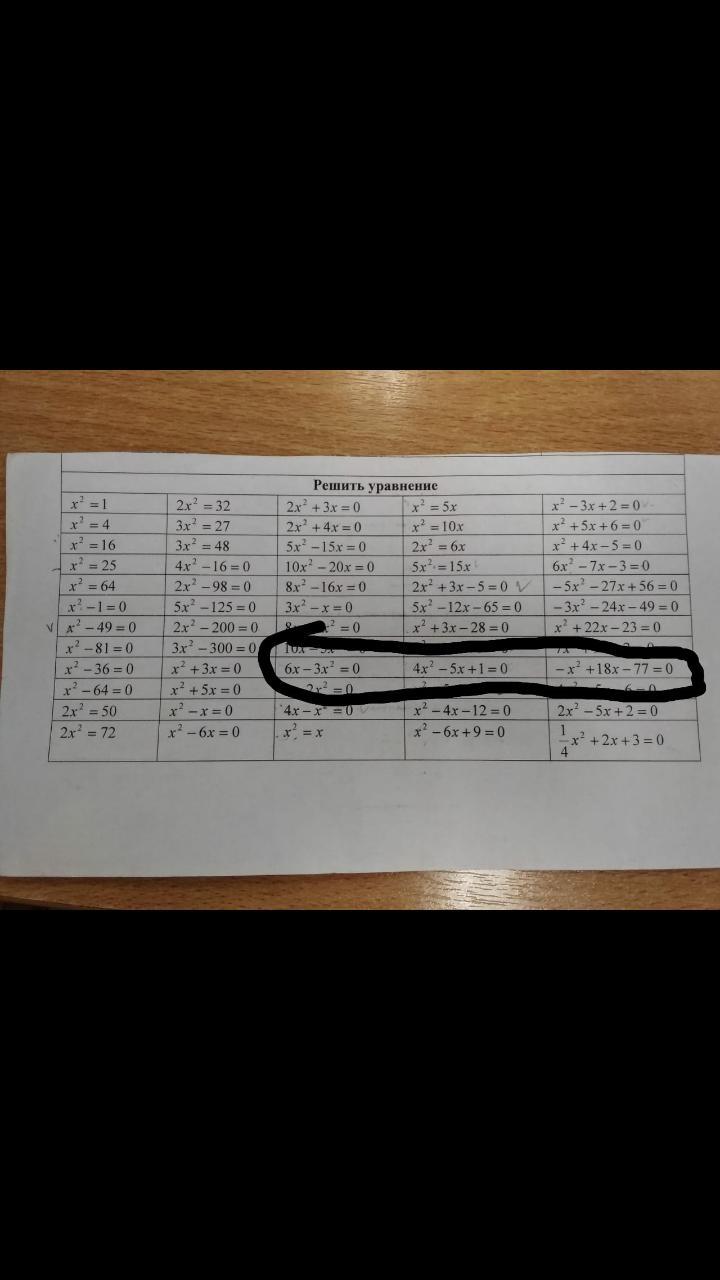 Решить уравнение
x² = 1 2x² = 32 2x² + 3x = 0 x² = 5x x² − 3x + 2 = 0
x² = 4 3x² = 27 2x² + 4x = 0 x² = 10x x² + 5x + 6 = 0
x² = 16 3x² = 48 5x² − 15x = 0 2x² = 6x x² + 4x − 5 = 0
x² = 25 4x² − 16 = 0 10x² − 20x = 0 5x² = 15x 6x² − 7x − 3 = 0
x² = 64 2x² − 98 = 0 8x² − 16x = 0 2x² + 3x − 5 = 0 −5x² − 27x + 56 = 0
x² − 1 = 0 5x² − 125 = 0 3x² − x = 0 5x² − 12x − 65 = 0 −3x² − 24x − 49 = 0
x² − 49 = 0 2x² − 200 = 0 x² = 0 x² + 3x − 28 = 0 x² + 22x − 23 = 0
x² − 81 = 0 3x² − 300 = 0
x² − 36 = 0 x² + 3x = 0 6x − 3x² = 0 4x² − 5x + 1 = 0 −x² + 18x − 77 = 0
x² − 64 = 0 x² + 5x = 0 2x² = 0
2x² = 50 x² − x = 0 4x − x² = 0 x² − 4x − 12 = 0 2x² − 5x + 2 = 0
2x² = 72 x² − 6x = 0 x² = x x² − 6x + 9 = 0 1/4x² + 2x + 3 = 0